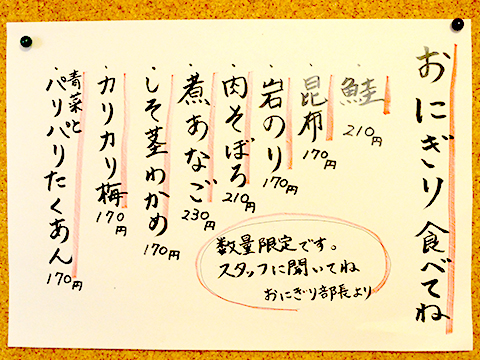 おにぎり食べてね
・鮭
210円
・昆布
170円
・岩のり
170円
・肉そぼろ
210円
・煮あなご
230円
・しそ茎わかめ
170円
・カリカリ梅
170円
・青菜と
パリパリたくあん
170円
数量限定です。
スタッフに聞いてね
おにぎり部長より